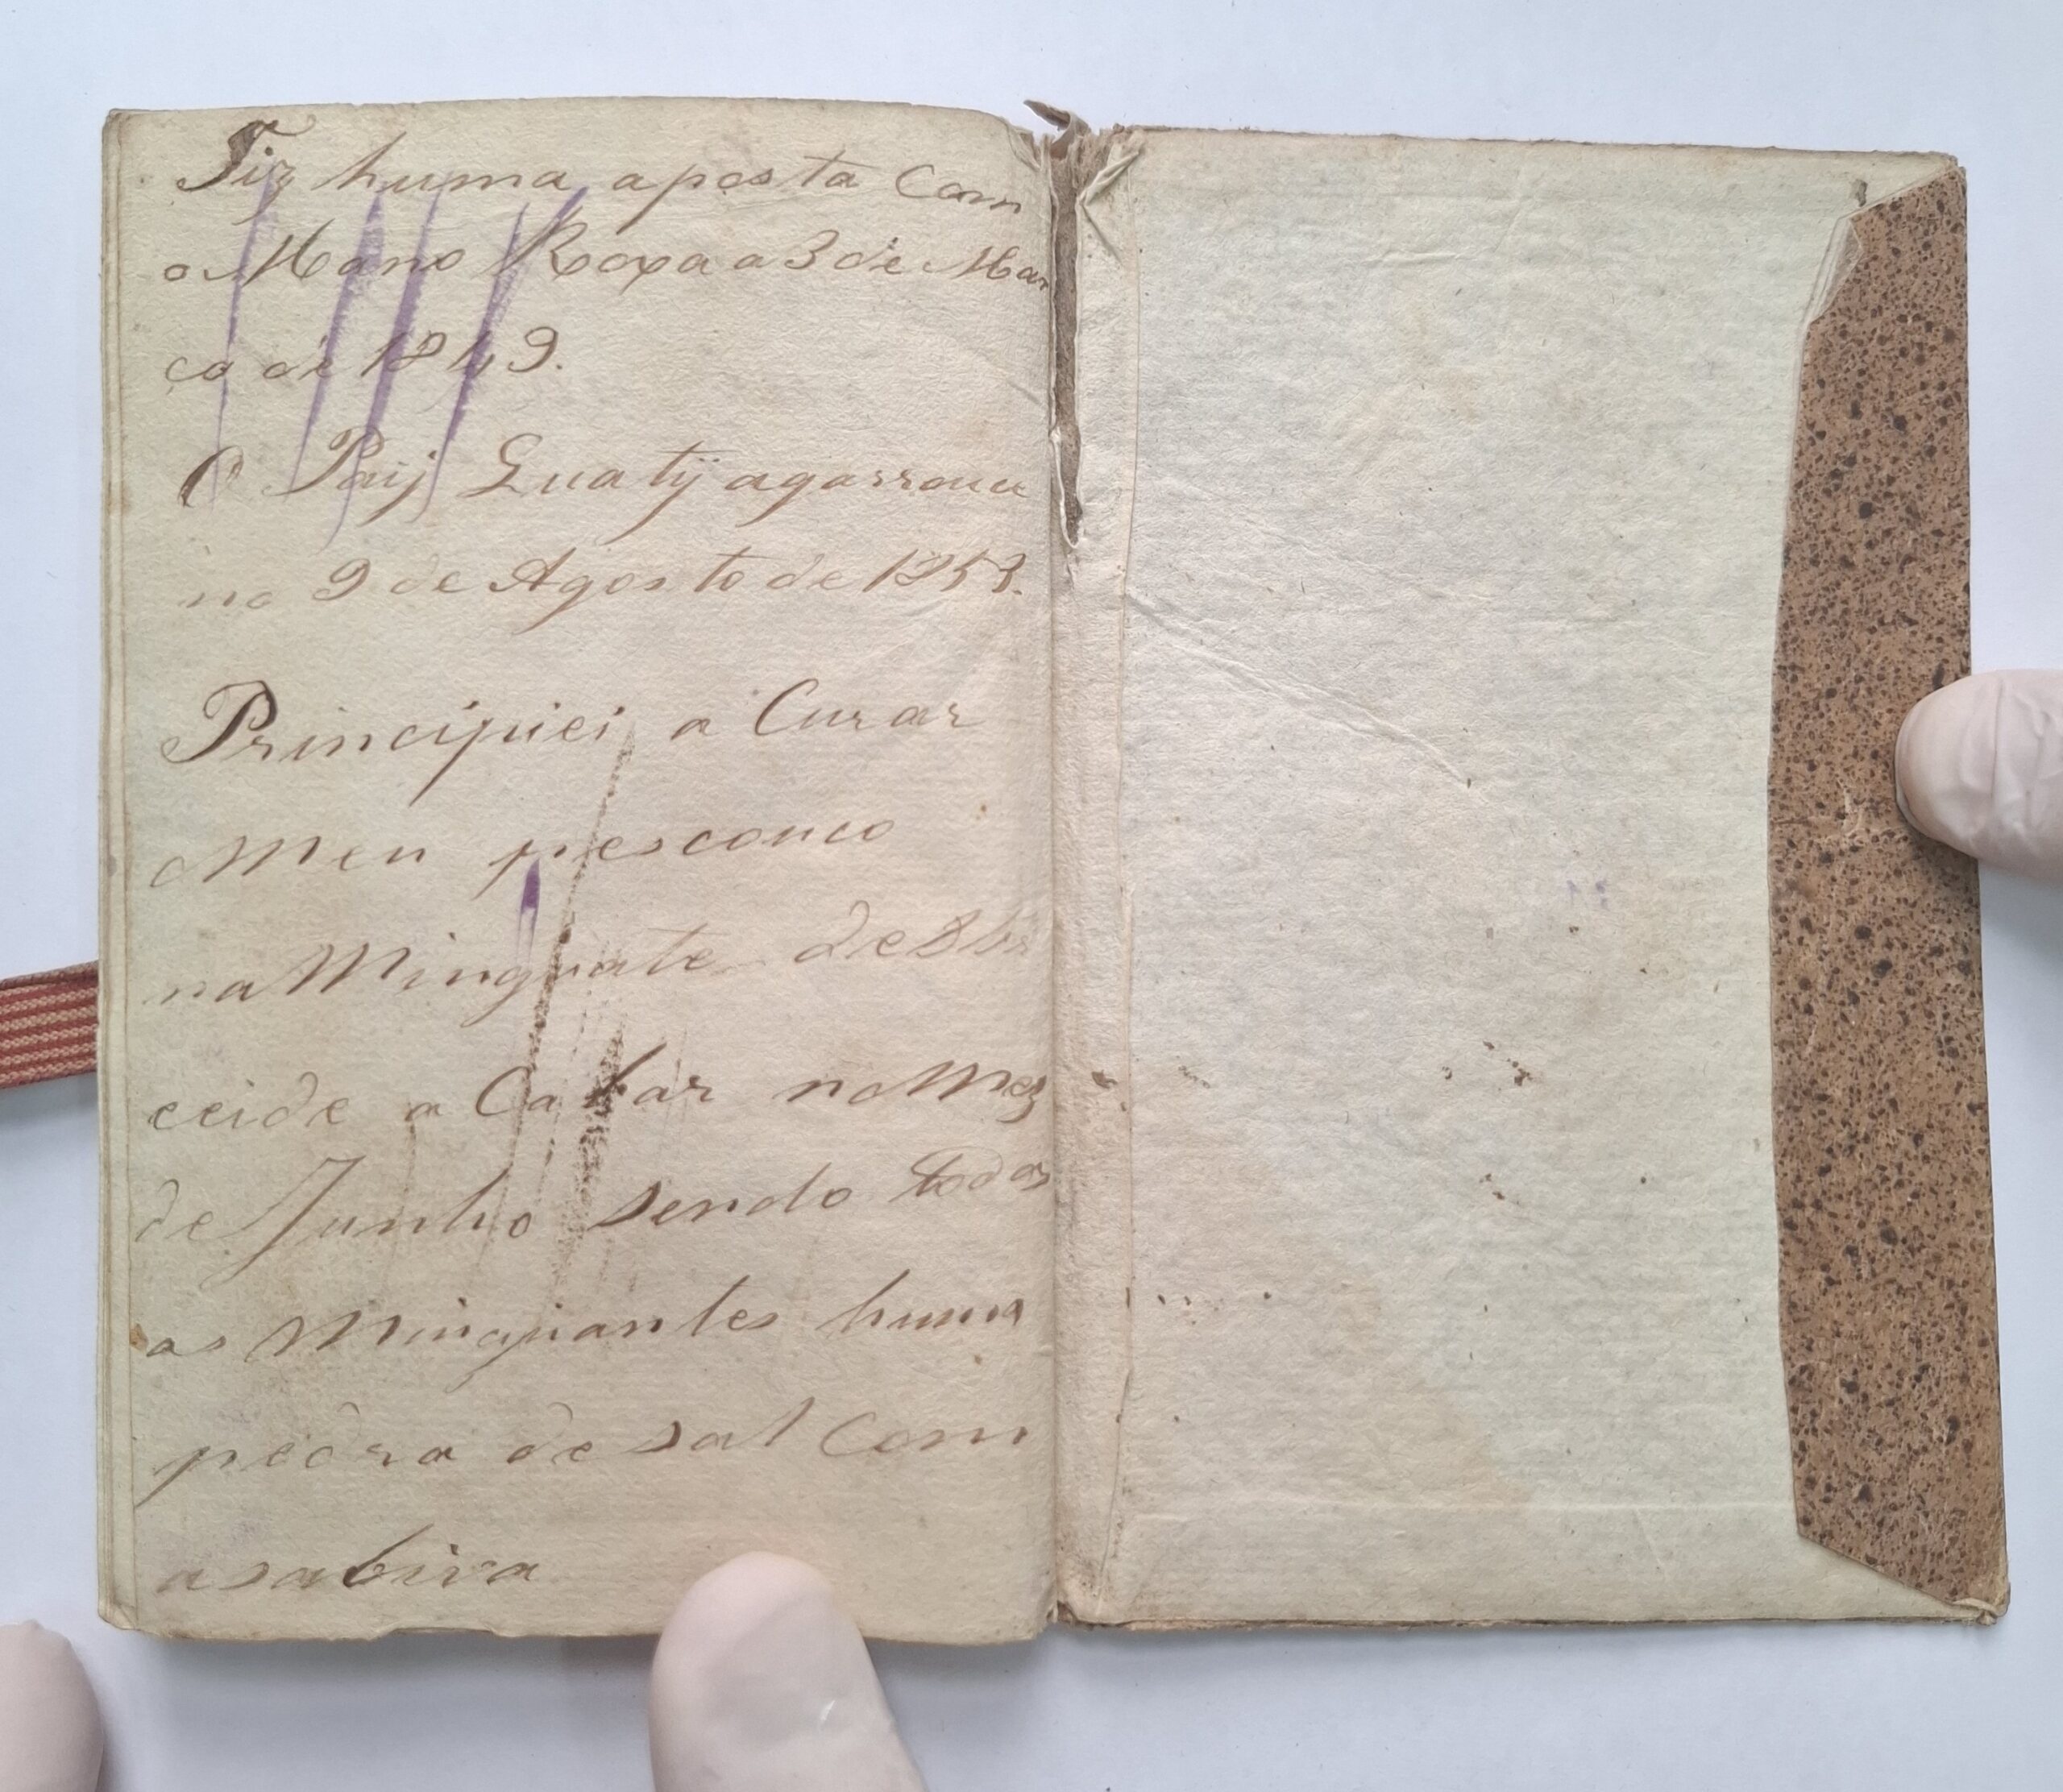 Fiz huma aposta Com
o Mano Roxa a 3 de Mar
ço de 1849.
O Paij Quatij agarrou
no 9 de Agosto de 1853.
Principiei a Curar
Meu pescouco
na Minguate de
a Cabar no Mez
de Junho sendo todas
as Minguantes huma
pedra de sal Com
a sabiva